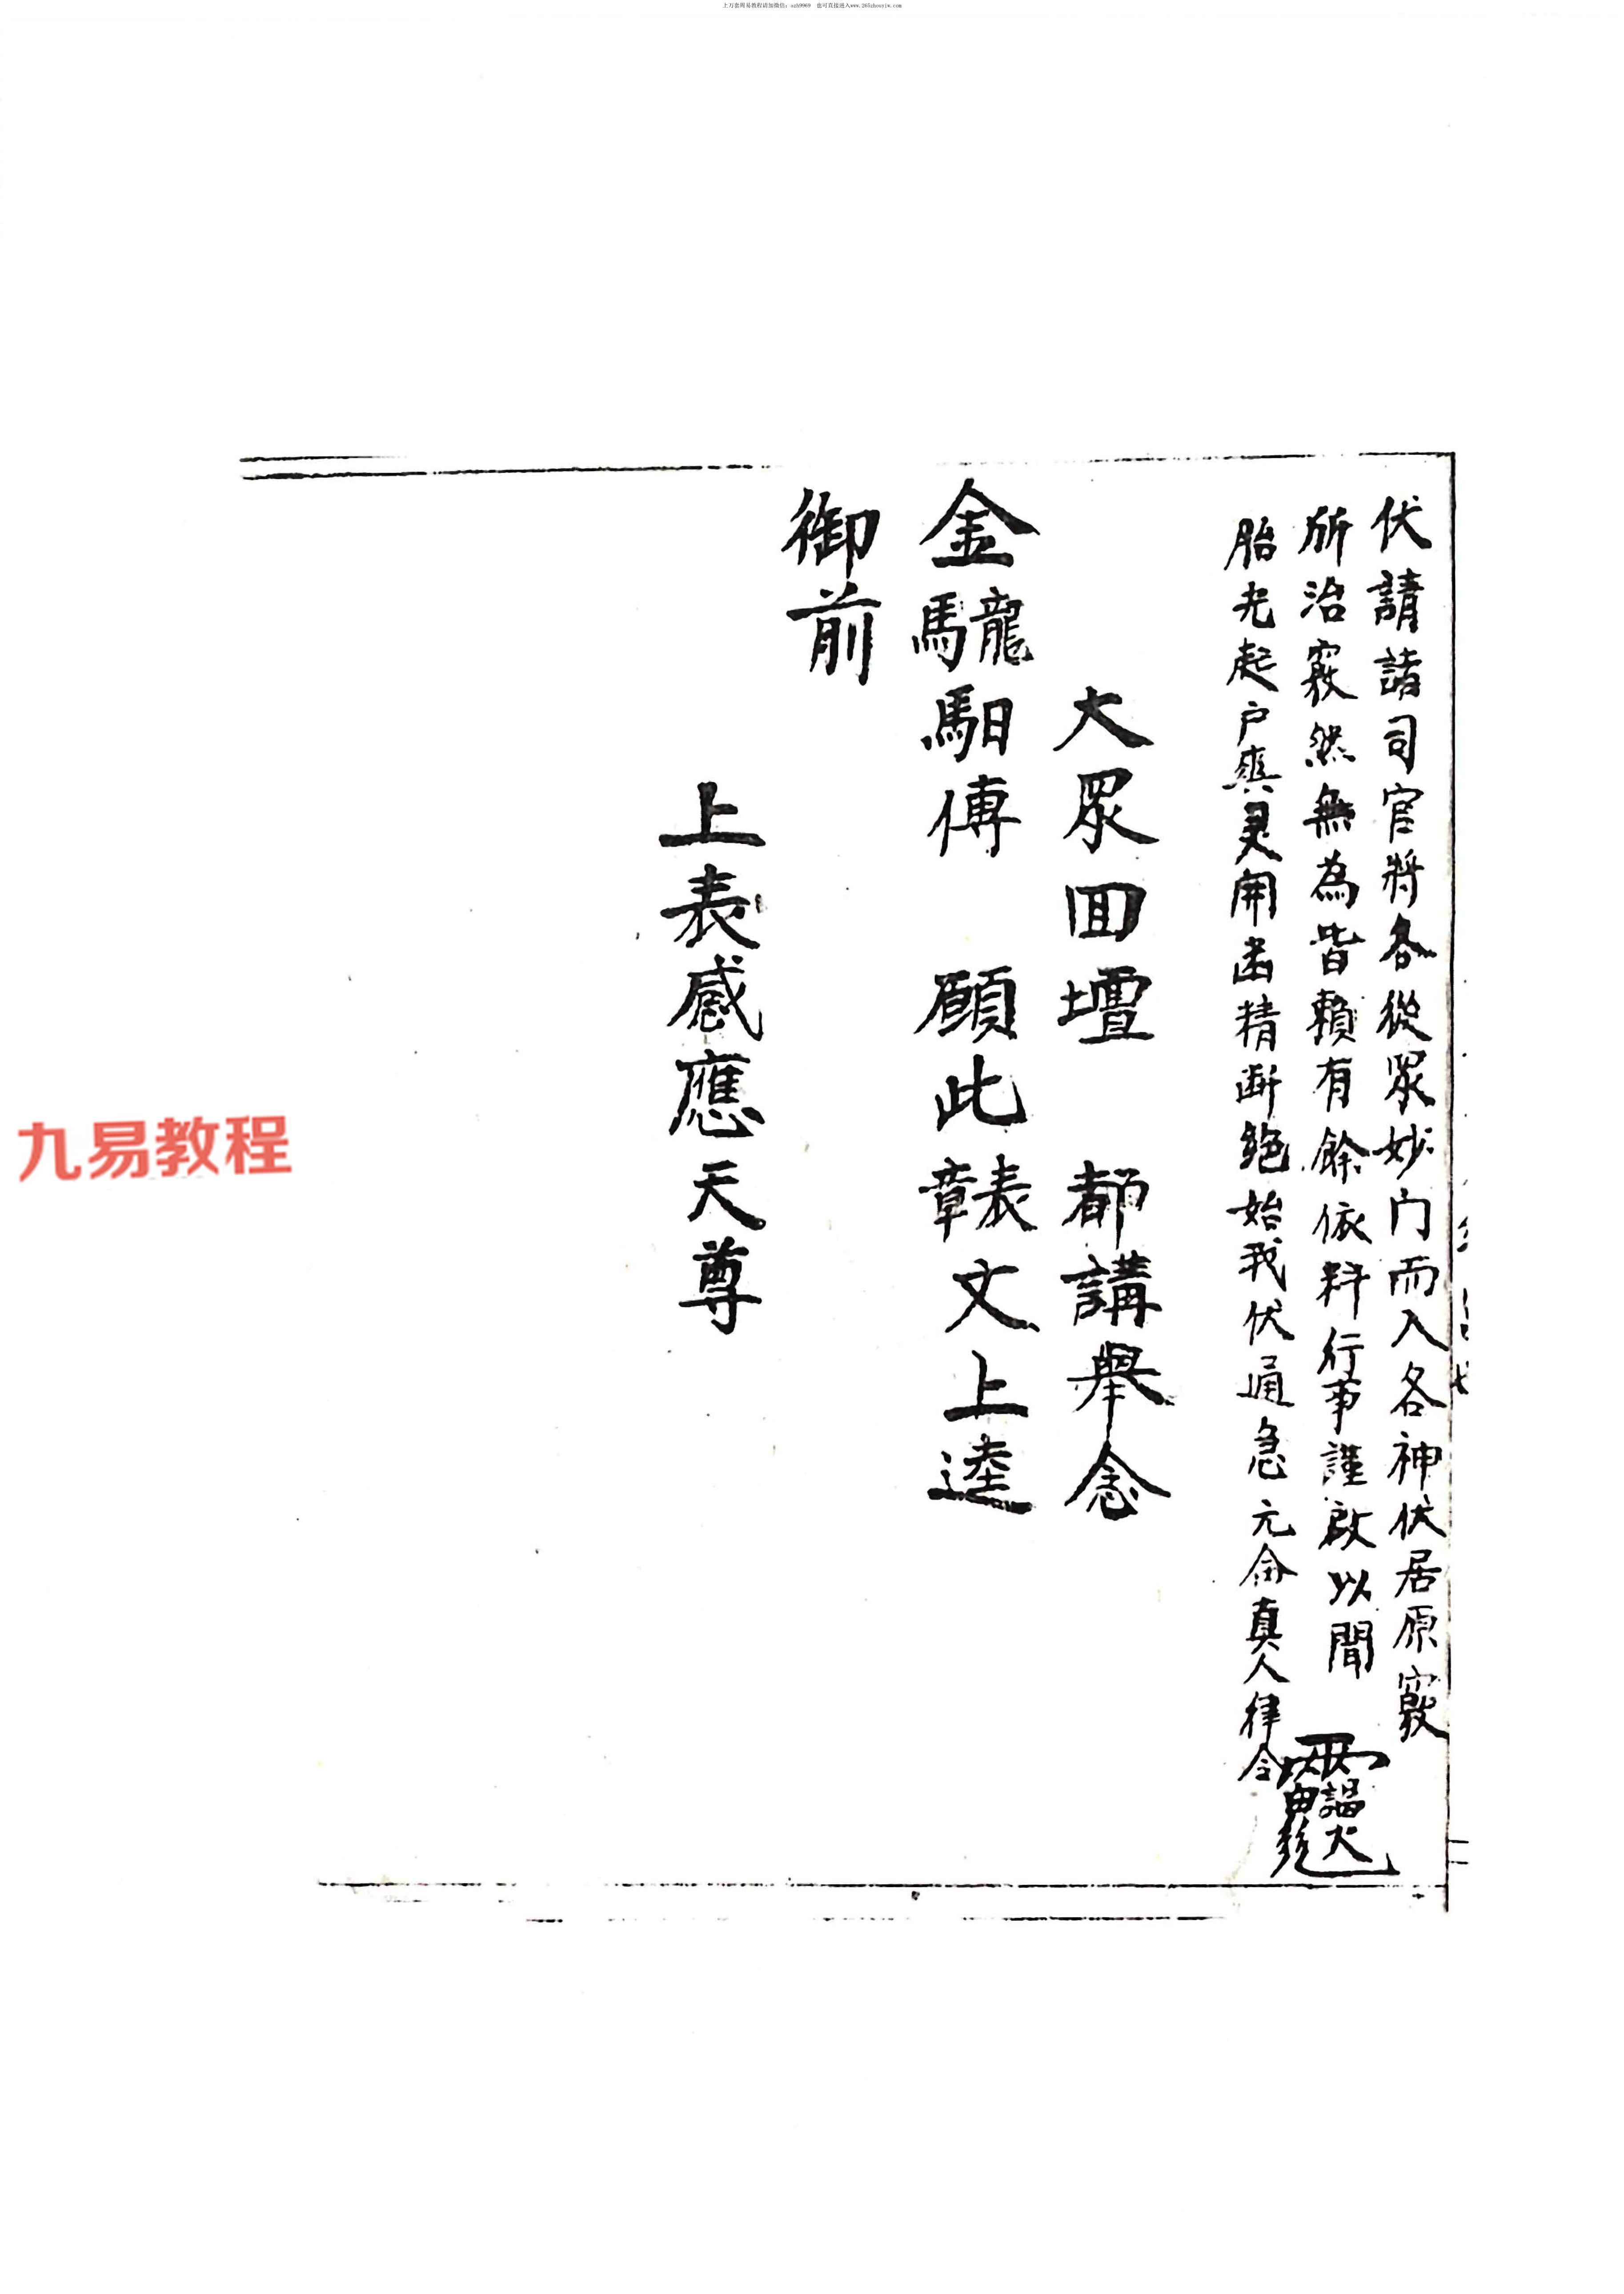 上万套周易教程请加微信：szh9969 也可直接进入www.265zhouyiw.com
伏請諸司官將各從眾妙门而入各神伏居原竅
所治竅然無為皆賴有餘依科行事謹啟以聞
胎光起户爽灵開幽精断绝始我伏通急元命真人律令
大眾回壇 都講舉念
金龍馹傳 願此表文上達
御前
上表感應天尊
九易教程